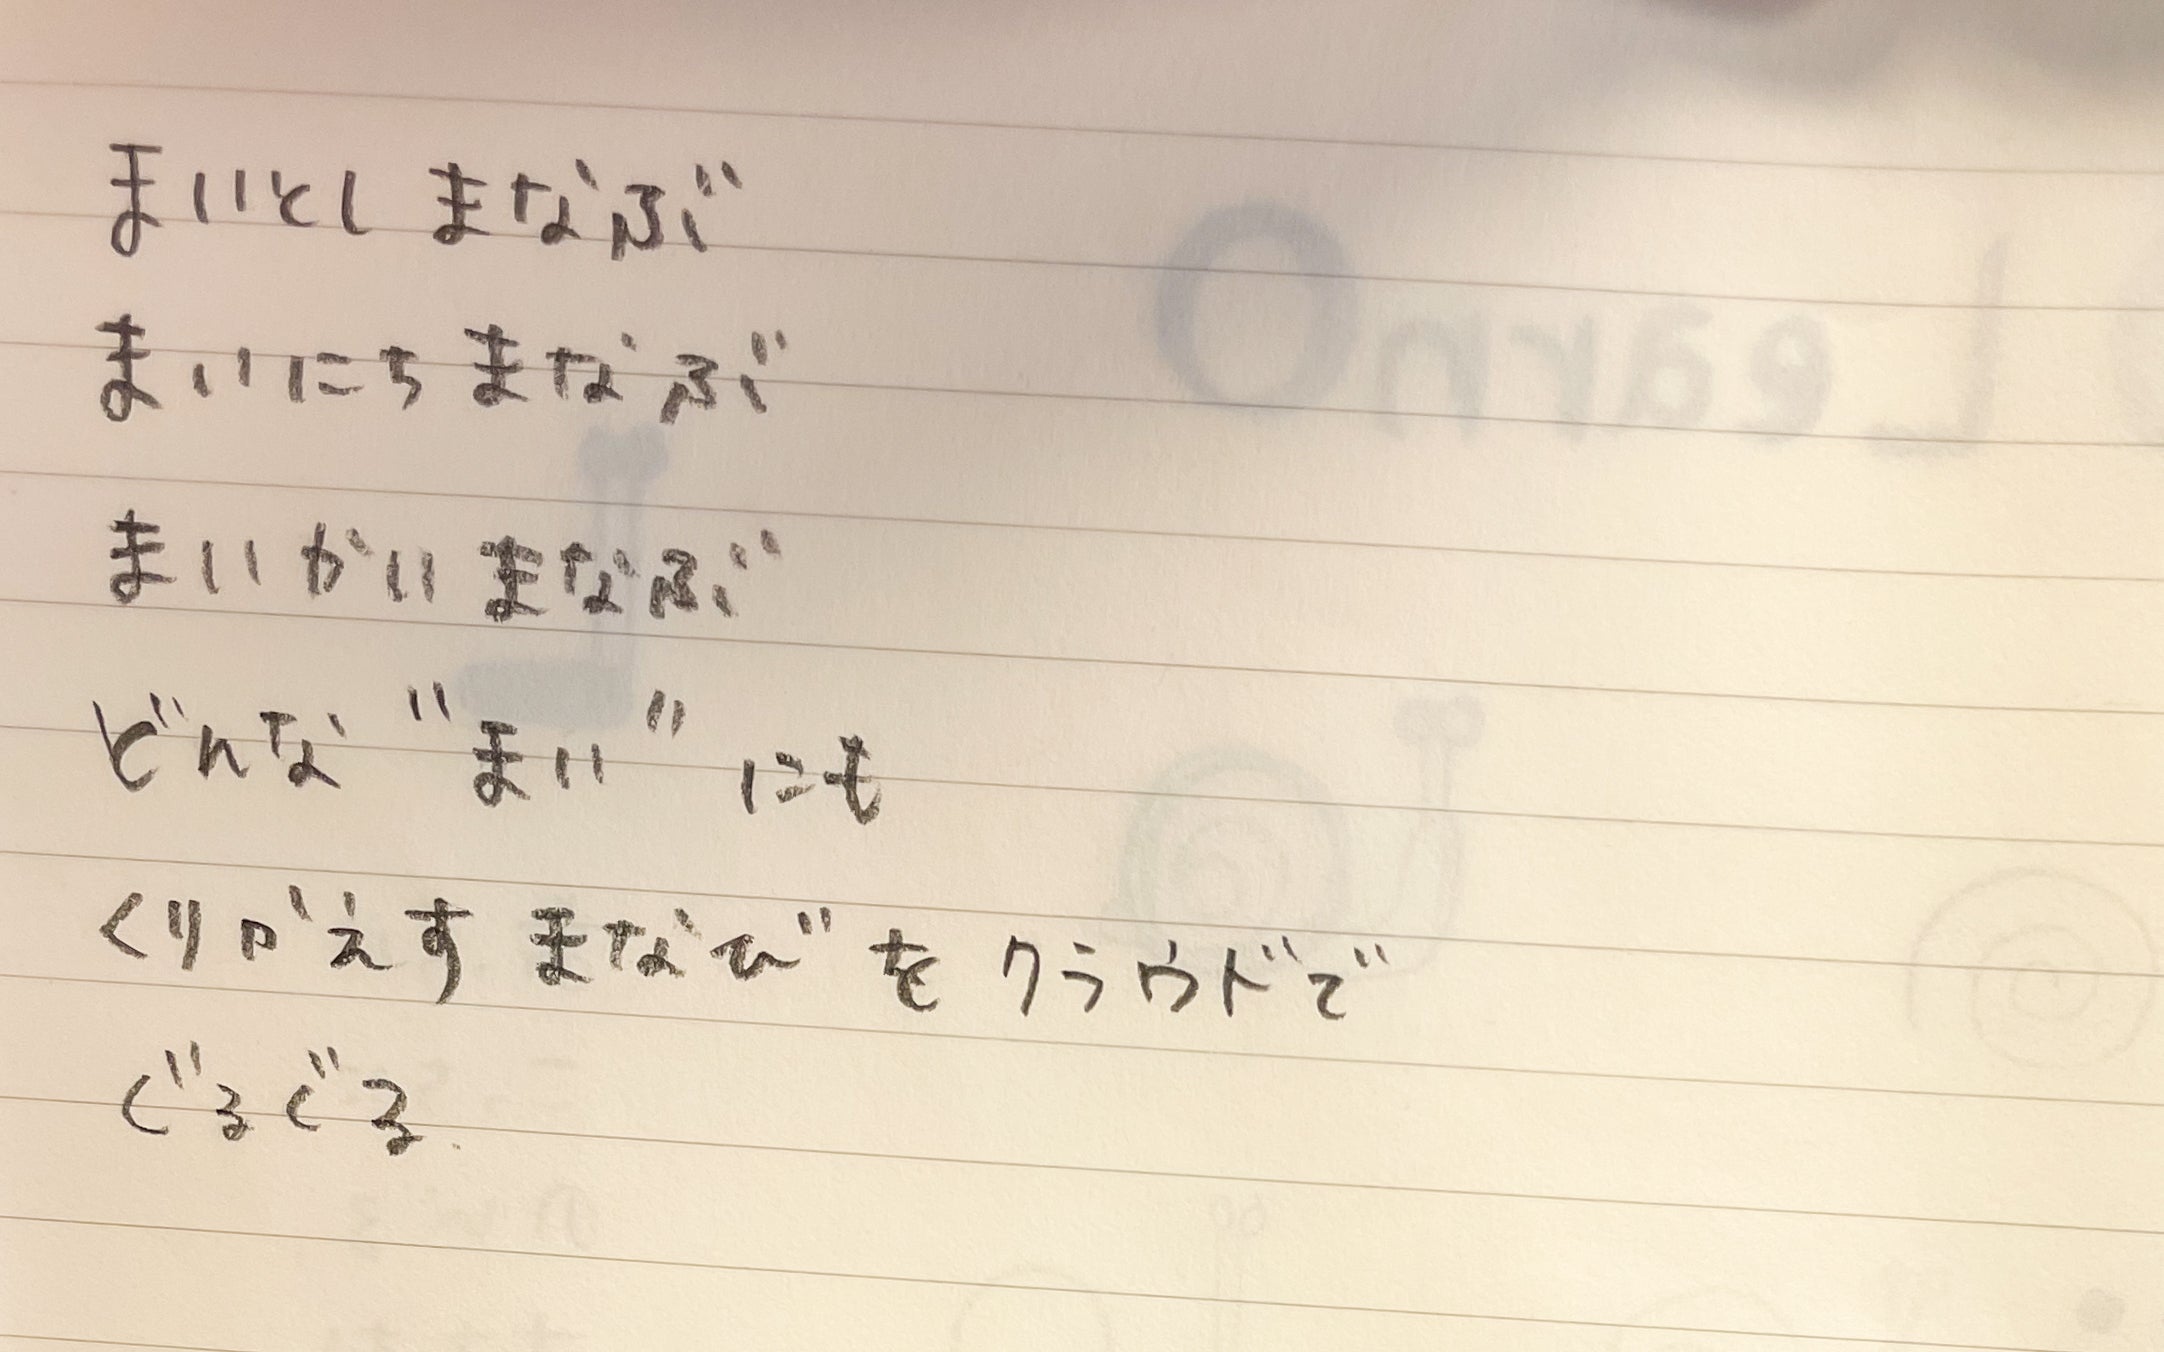 まいとし まなぶ
まいにち まなぶ
まいかい まなぶ
どんな "まい" にも
くりかえす まなび を クラウドで
ぐるぐる
LearnO